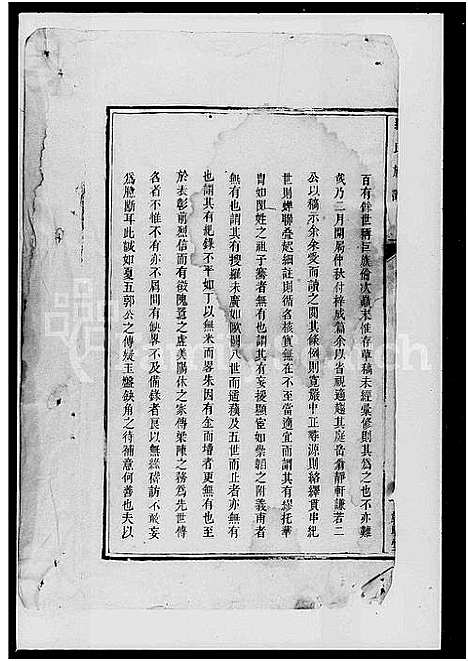 百有餘世稱巨族倫次顛末惟存草稿未經彙修則其為之也不亦難
哉乃二月開局仲秋付梓成篇余以省視適趨其庭岳翁靜軒謙若二
公以稿示余余愛而讀之閱其條例則寬嚴中正尋源則絡繹貫串紀
世則蟬聯叠起細註則循名核實無在不至當適宜而謂其有謬托華
冑如閔姓之祖子騫者無有也謂其有妄援顯宦如崇韜之附義甫者
無有也謂其有搜羅未廣如歐闕八世而通積及五世而止者亦無有
也謂其有紀錄不平如丁以無米而畧朱因有金而增者更無有也至
於表彰前烈信而有徵陋魏之虛美賜休之家傳梁陳之務為先世傳
名者不惟不有亦不屑間有缺畧不及備錄者良以無經磋訪不敢妄
為臆斷耳此誠如夏五郭公之傳疑玉盤缺角之待補意何善也夫以